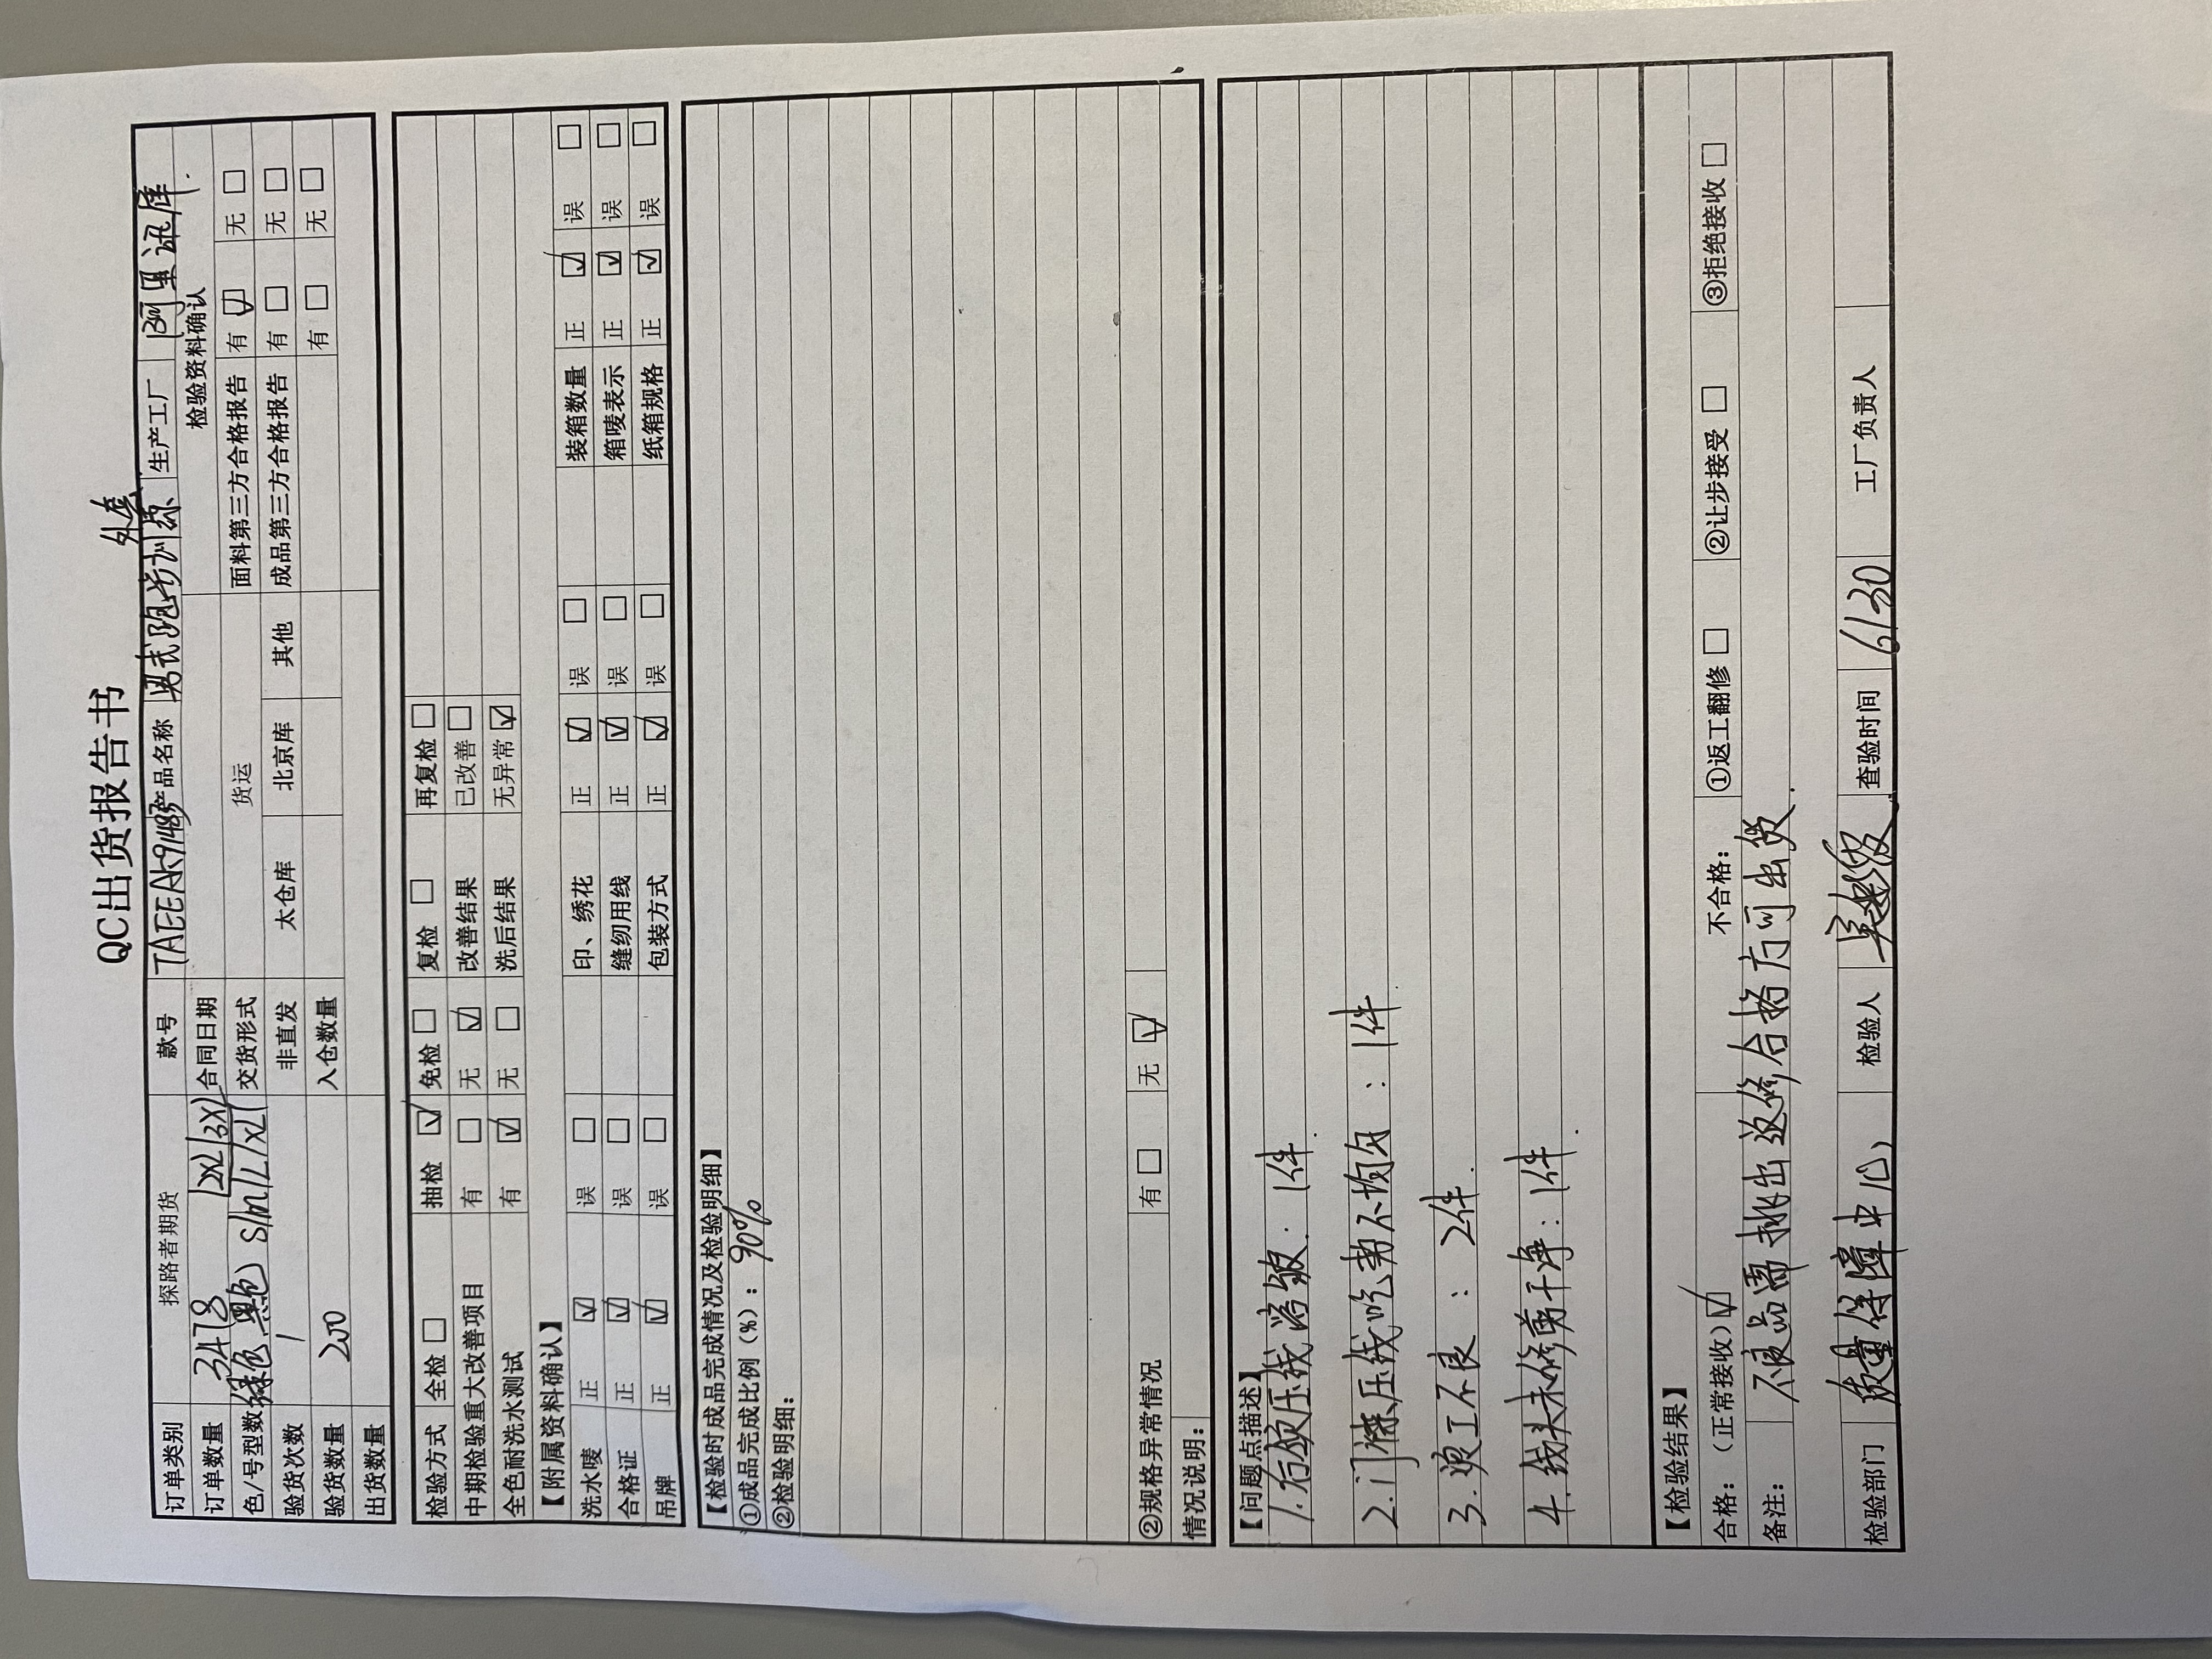 QC出货报告书
订单类别 探路者期货 款号 TAEEAK91483 产品名称 男式跑步训练外套 生产工厂
订单数量 3478 合同日期 检验资料确认
色/号型数 绿色 黑色 S/M/L/XL/2XL/3XL 交货形式 货运 面料第三方合格报告 有☑ 无□
验货次数 1 非直发 太仓库 北京库 其他 成品第三方合格报告 有□ 无□
验货数量 200 入仓数量 有□ 无□
出货数量
检验方式 全检□ 抽检☑ 免检□ 复检□ 再复检□
中期检验重大改善项目 有□ 无☑ 改善结果 已改善□
全色耐洗水测试 有☑ 无□ 洗后结果 无异常☑
【附属资料确认】
洗水唛 正☑ 误□ 印、绣花 正☑ 误□ 装箱数量 正☑ 误□
合格证 正☑ 误□ 缝纫用线 正☑ 误□ 箱唛表示 正☑ 误□
吊牌 正☑ 误□ 包装方式 正☑ 误□ 纸箱规格 正☑ 误□
【检验时成品完成情况及检验明细】
①成品完成比例（%）：90%
②检验明细：
②规格异常情况 有□ 无☑
情况说明：
【问题点描述】
1.后领压线 ：1件.
2.门襟压线吃势不均匀：1件.
3.烫工不良：2件.
4.线头未修剪干净：1件.
【检验结果】
合格：（正常接收）☑ 不合格： ①返工翻修□ ②让步接受□ ③拒绝接收□
备注： 不良品需挑出返修合格方可出货.
检验部门 质量保障中心 检验人 查验时间 6/30 工厂负责人